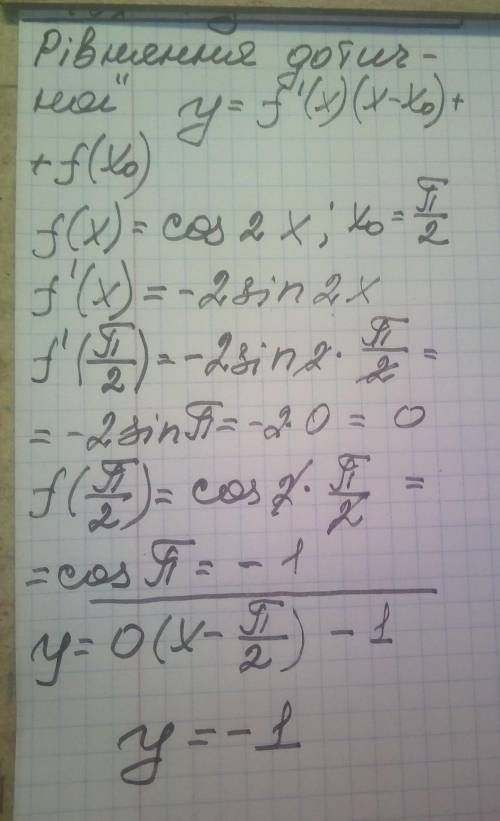 Рівняння дотич-
ної" y = f'(x)(x-x₀)+
+f(x₀)
f(x) = cos 2x; x₀ = π/2
f'(x) = -2sin2x
f'(π/2) = -2sin 2 · π/2 =
= -2sinπ = -2·0 = 0
f(π/2) = cos 2 · π/2 =
= cos π = -1
y = 0(x - π/2) - 1
y = -1